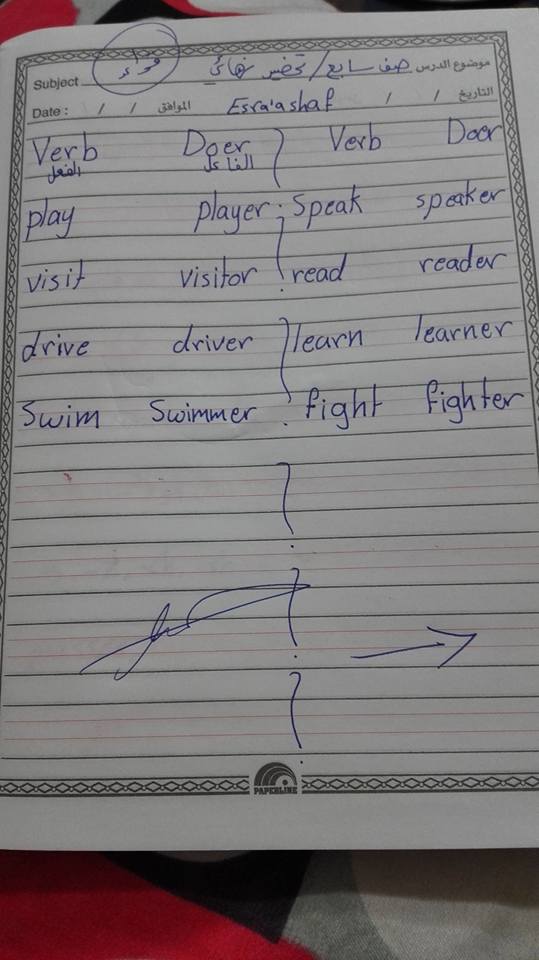 Subject موضوع الدرس صف سابع / تحضير نهائي
Date : / / الموافق Esra'ashaf / / التاريخ
Verb Doer Verb Doer
الفعل الفاعل
play player speak speaker
visit visitor read reader
drive driver learn learner
Swim Swimmer fight fighter
PAPERLINE